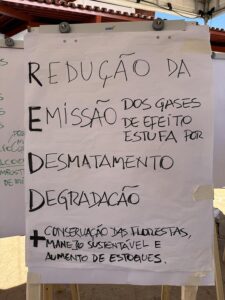 REDUÇÃO DA
EMISSÃO DOS GASES
DE EFEITO
ESTUFA POR
DESMATAMENTO
DEGRADACÃO
+ CONSERVAÇÃO DAS FLORESTAS,
MANEJO SUSTENTÁVEL E
AUMENTO DE ESTOQUES.